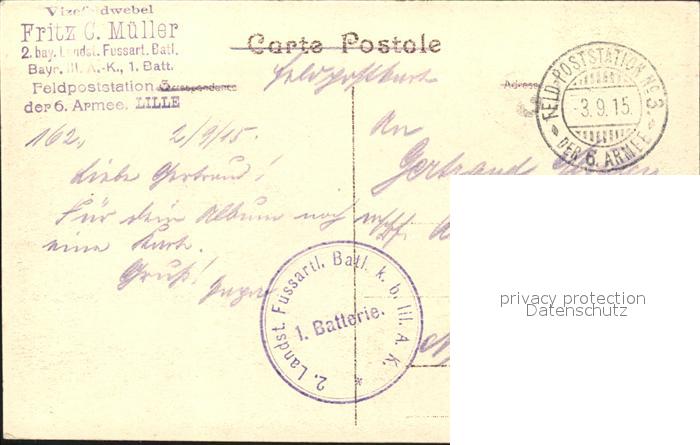 Vizefeldwebel
Fritz C. Müller
2. bay. Landst. Fussart. Batl.
Bayr. III. A.-K., 1. Batt.
Feldpoststation 3
Correspondance
der 6. Armee. LILLE
Carte Postale
Feldpostkarte
Adresse
FELD-POSTSTATION No 3.
-3.9.15.
DER 6. ARMEE
162. 2/9/15.
Liebe Gertraud!
Für dein Album noch
eine Karte.
Gruß!
An
Gertraud
2. Landst. Fussartl. Batl. k. b. III. A. K.
1. Batterie.
privacy protection
Datenschutz